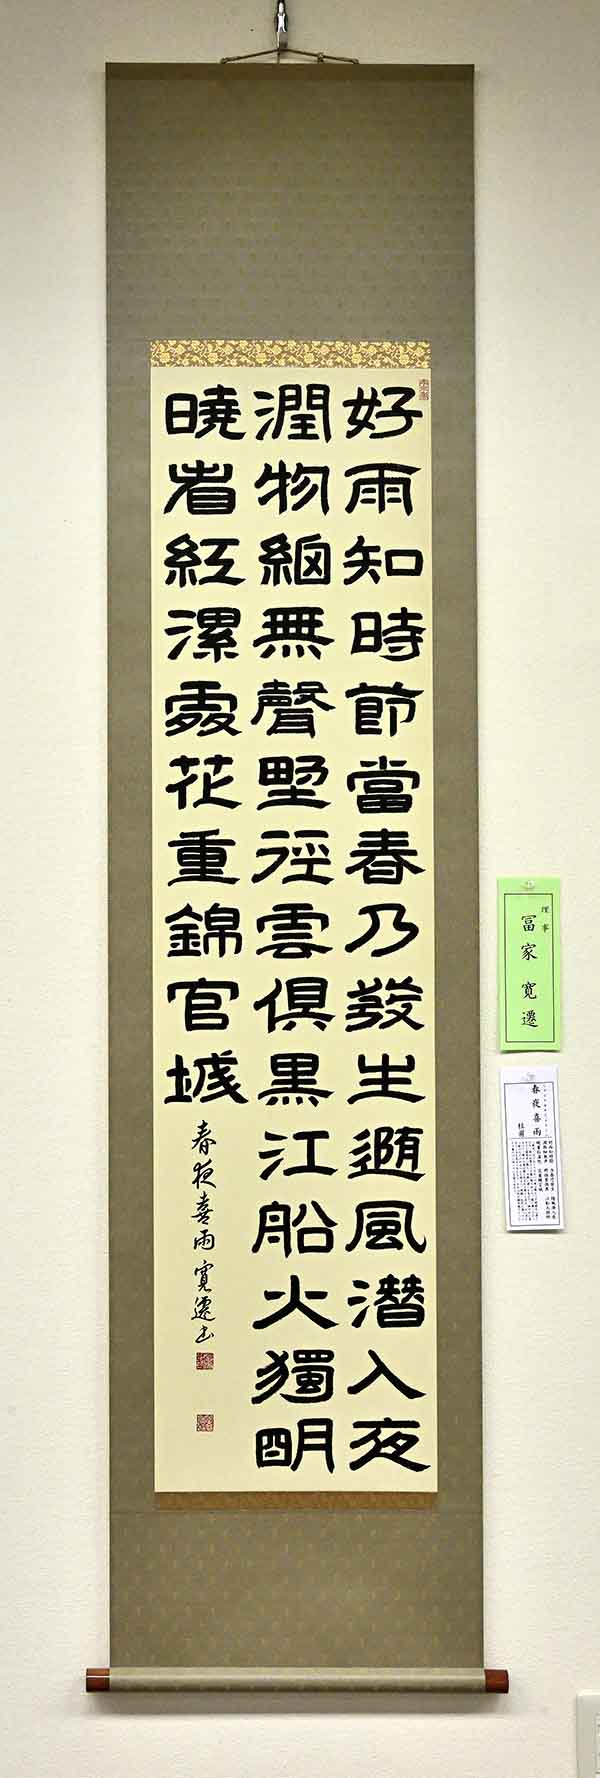 好雨知時節當春乃發生隨風潛入夜
潤物細無聲野徑雲俱黒江船火獨明
曉看紅濕處花重錦官城
春夜喜雨 寛遷書
理事
冨家寛遷
春夜喜雨
杜甫